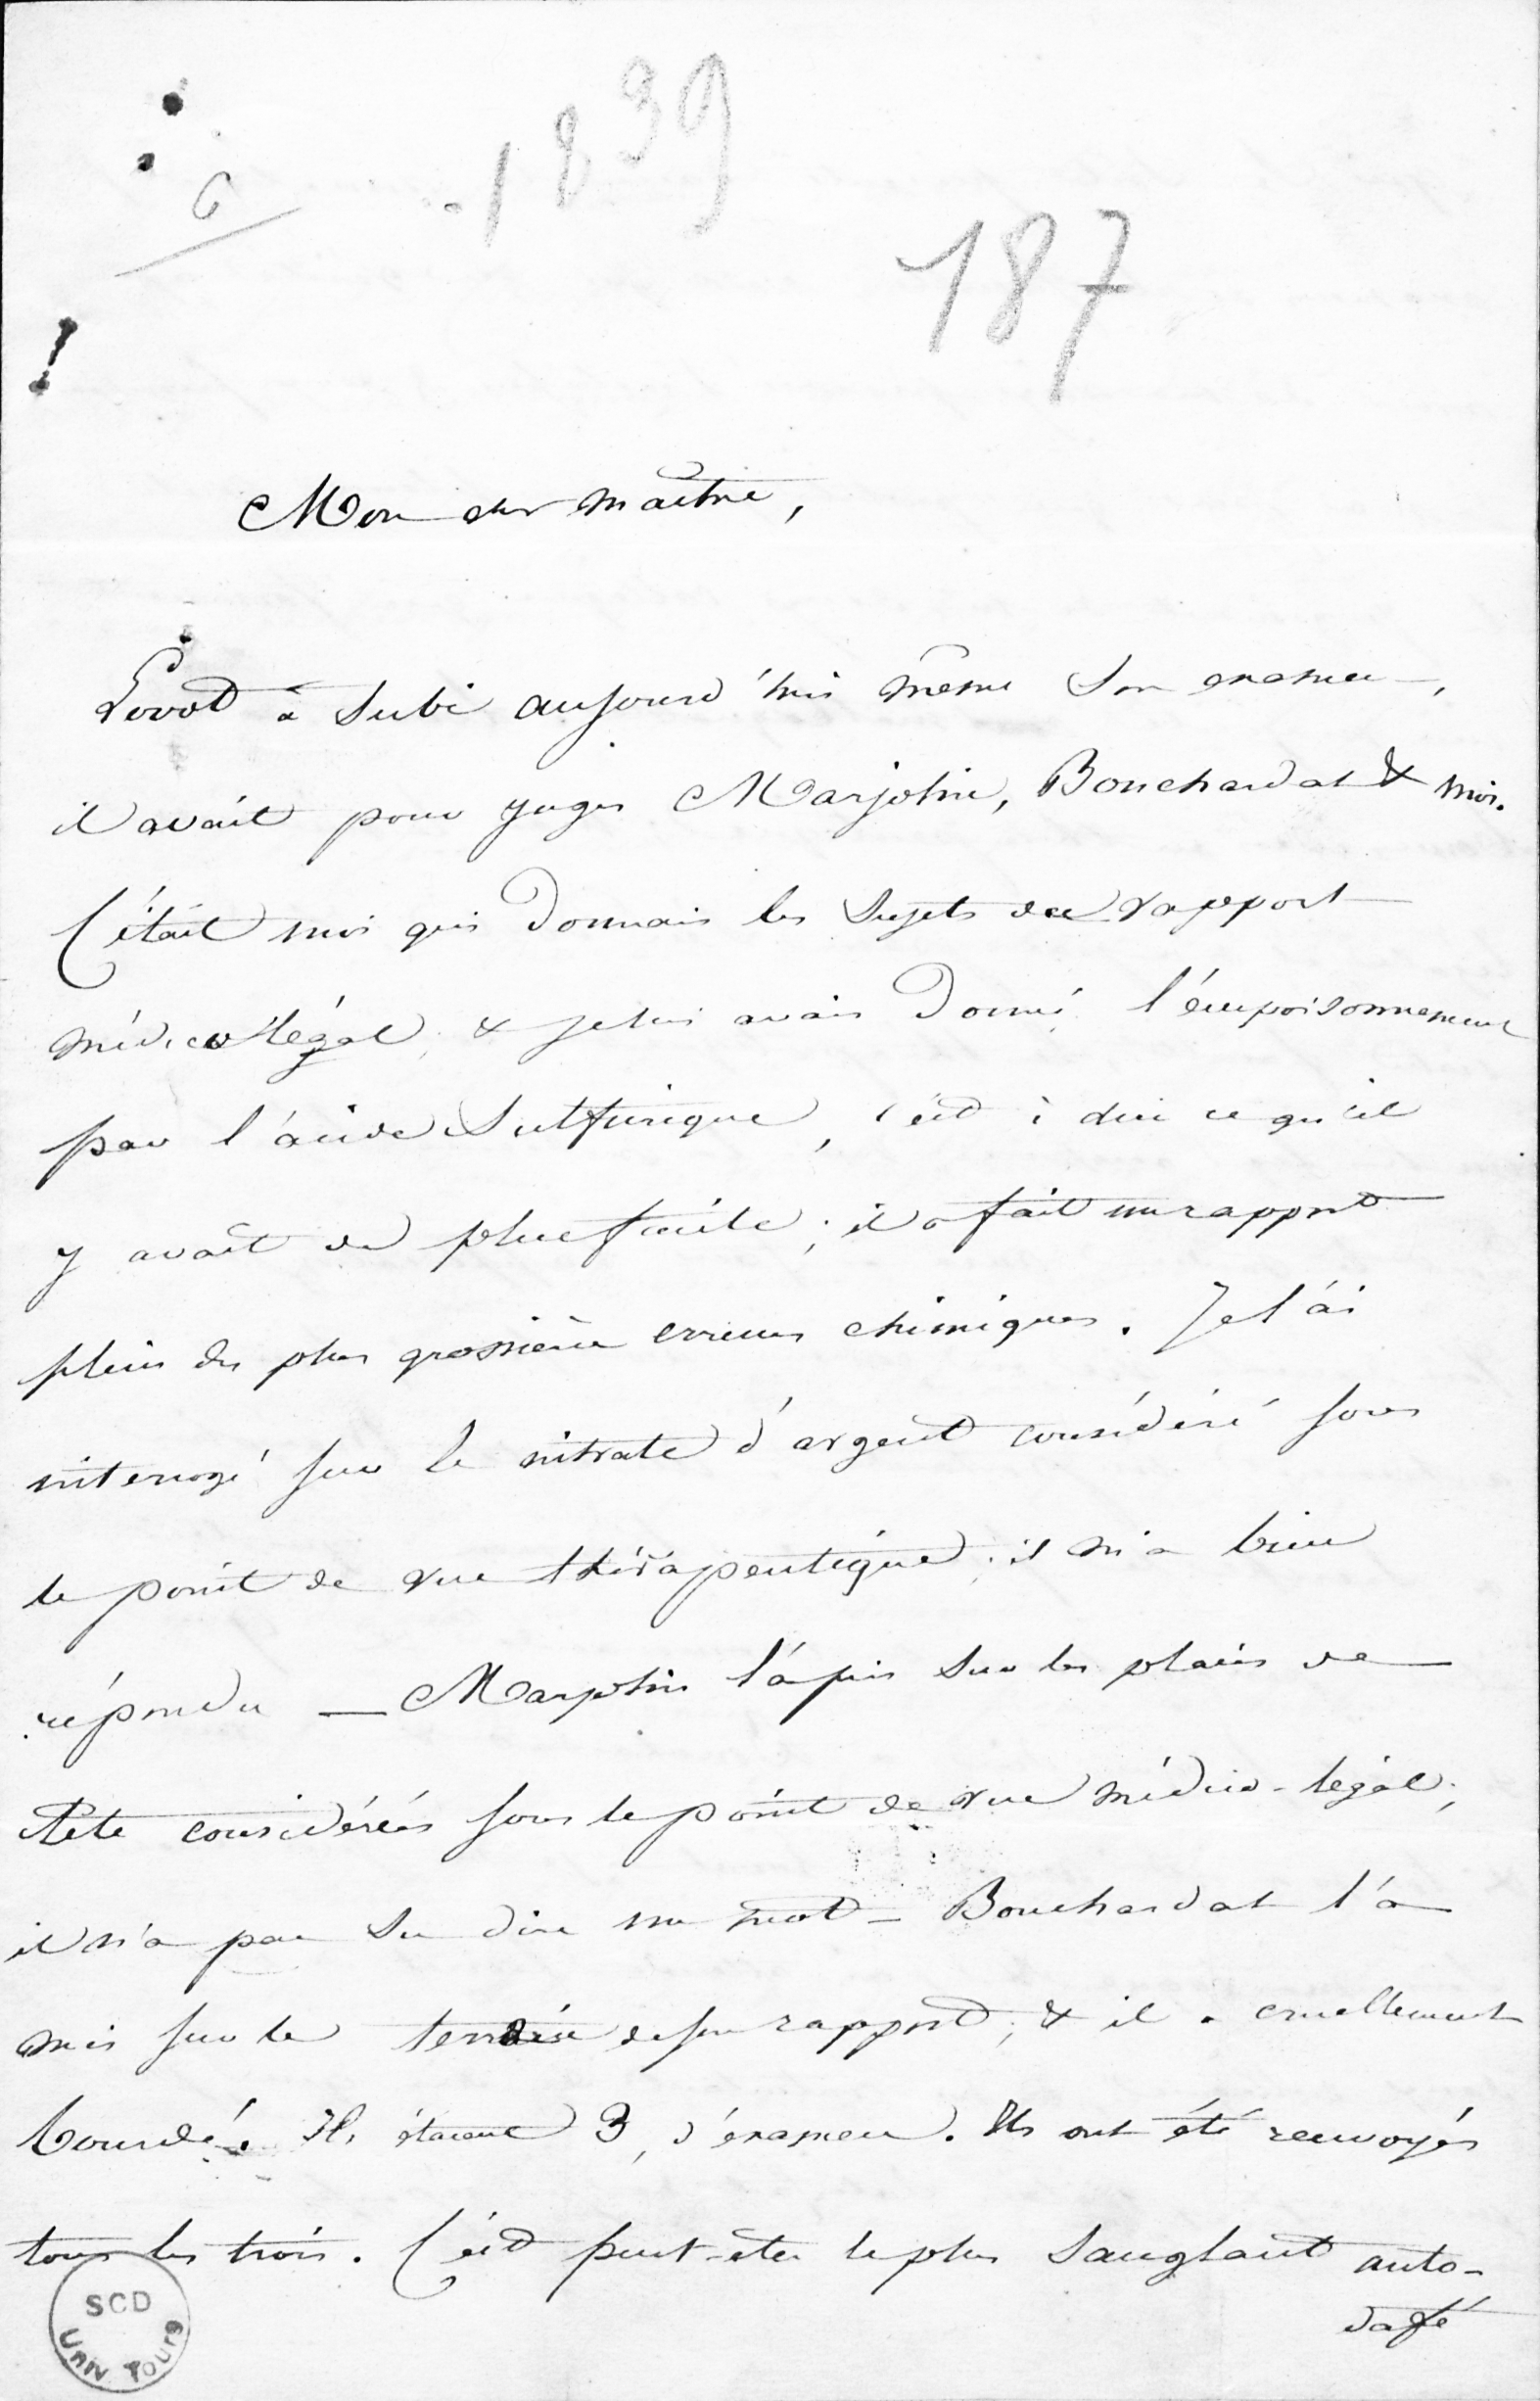 6
1839
187
Mon cher maître,
a subi aujourd'hui même son examen,
il avait pour juges Marjolin, Bouchardat & moi.
C'était moi qui donnais les sujets de rapport
médico légal, & je lui avais donné l'empoisonnement
par l'acide sulfurique, c'est à dire ce qu'il
y avait de plus facile ; il a fait un rapport
plein des plus grossières erreurs chimiques. Je l'ai
interrogé sur le nitrate d'argent considéré sous
le point de vue thérapeutique ; il m'a bien
répondu — Marjolin l'a pris sur les plaies de
tête considérées sous le point de vue médico-légal,
il n'a pas su dire un mot — Bouchardat l'a
mis sur le terrain de son rapport, & il a cruellement
bourdé. Ils étaient 3, d'examen. Ils ont été renvoyés
tous les trois. C'est peut-être le plus sanglant auto-
dafé
SCD
Univ Tours